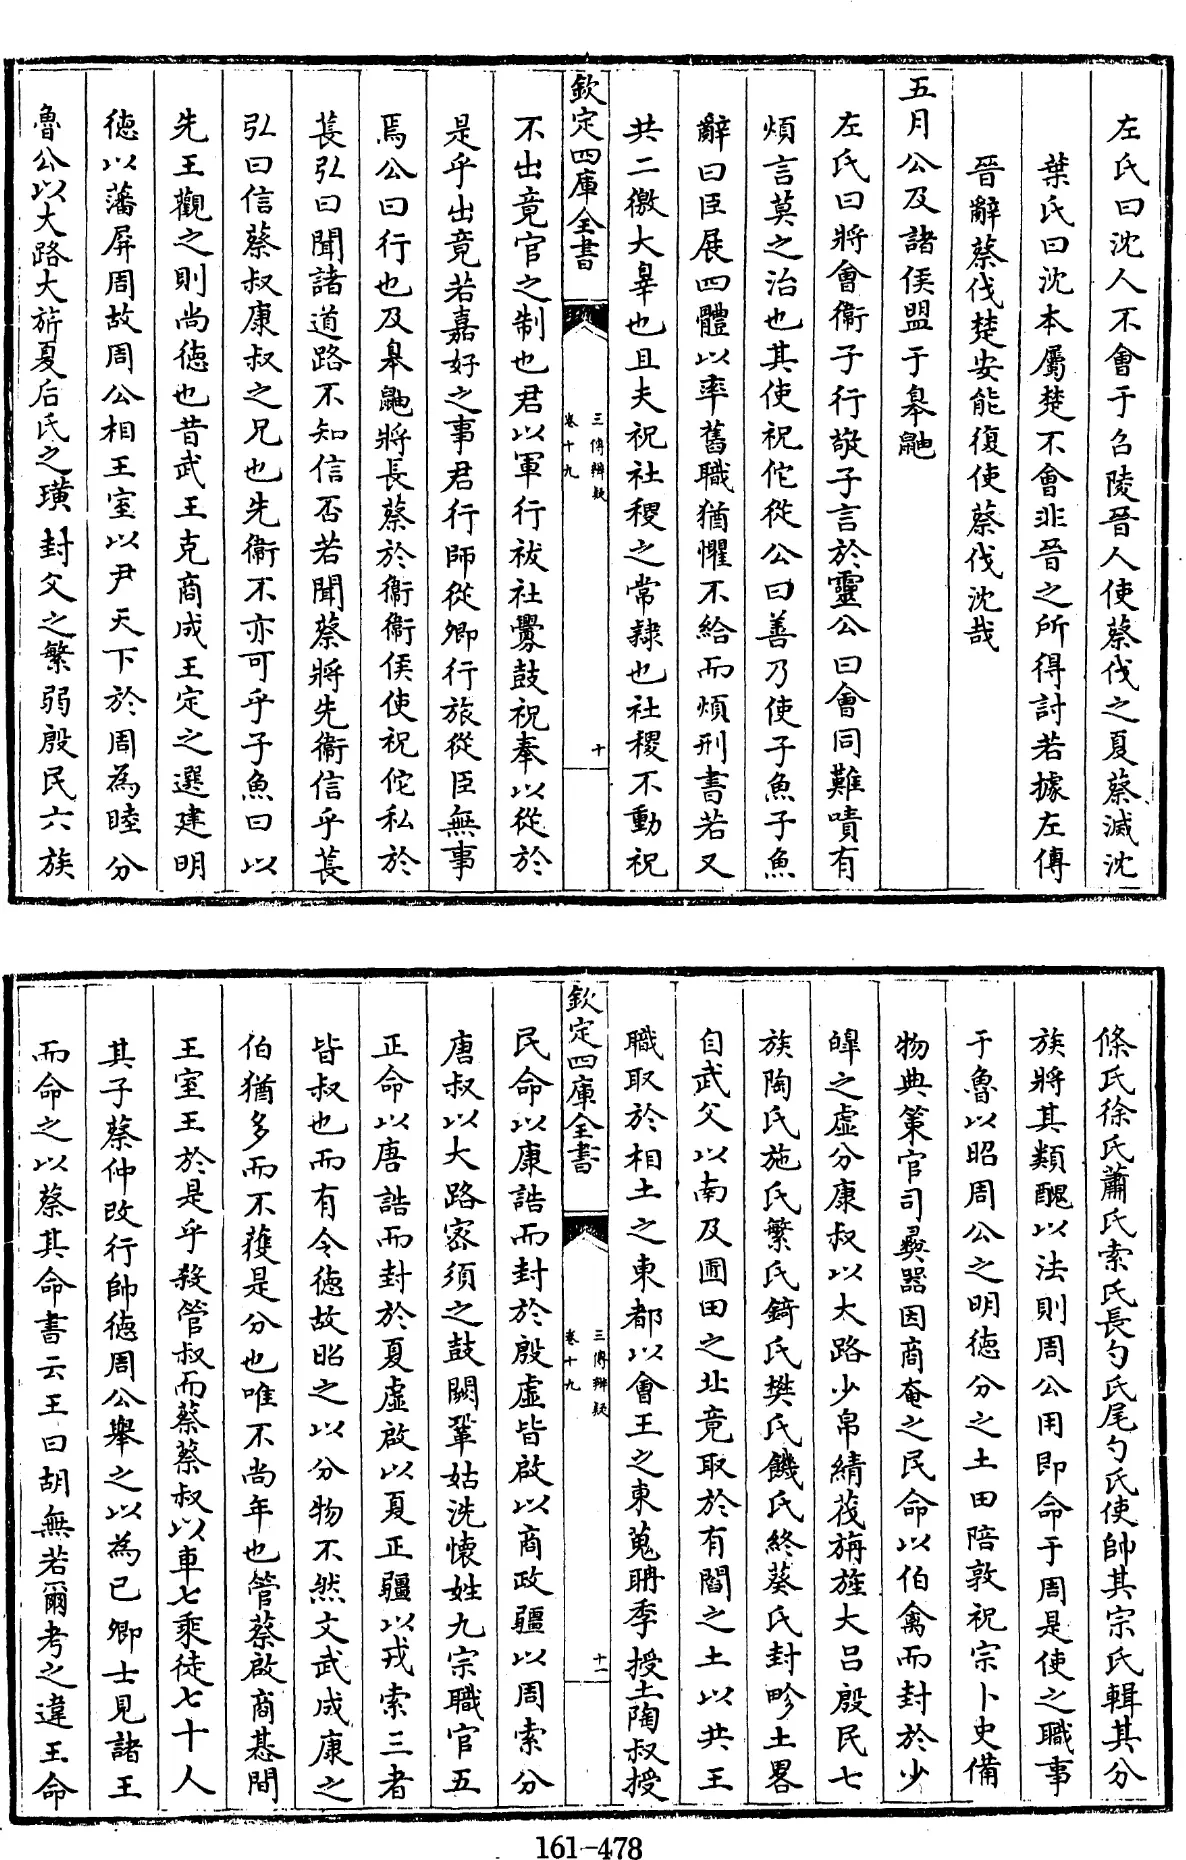 左氏曰沈人不會于召陵晉人使蔡伐之夏蔡滅沈
葉氏曰沈本屬楚不會非晉之所得討若據左傳
晉辭蔡伐楚安能復使蔡伐沈哉
五月公及諸侯盟于皋鼬
左氏曰將會衞子行敬子言於靈公曰會同難嘖有
煩言莫之治也其使祝佗從公曰善乃使子魚子魚
辭曰臣展四體以率舊職猶懼不給而煩刑書若又
共二徼大辠也且夫祝社稷之常隷也社稷不動祝
欽定四庫全書 三傳辨疑 卷十九 十
不出竟官之制也君以軍行祓社釁鼓祝奉以從於
是乎出竟若嘉好之事君行師從卿行旅從臣無事
焉公曰行也及皋鼬將長蔡於衞衞侯使祝佗私於
萇弘曰聞諸道路不知信否若聞蔡將先衞信乎萇
弘曰信蔡叔康叔之兄也先衞不亦可乎子魚曰以
先王觀之則尚德也昔武王克商成王定之選建明
德以藩屏周故周公相王室以尹天下於周為睦分
魯公以大路大旂夏后氏之璜封父之繁弱殷民六族
條氏徐氏蕭氏索氏長勺氏尾勺氏使帥其宗氏輯其分
族將其類醜以法則周公用即命于周是使之職事
于魯以昭周公之明德分之土田陪敦祝宗卜史備
物典策官司彞器因商奄之民命以伯禽而封於少
皥之虚分康叔以大路少帛綪茷旃旌大呂殷民七
族陶氏施氏繁氏錡氏樊氏饑氏終葵氏封畛土畧
自武父以南及圃田之北竟取於有閻之土以共王
職取於相土之東都以會王之東蒐聃季授土陶叔授
欽定四庫全書 三傳辨疑 卷十九 十一
民命以康誥而封於殷虚皆啟以商政疆以周索分
唐叔以大路密須之鼓闕鞏姑洗懷姓九宗職官五
正命以唐誥而封於夏虚啟以夏正疆以戎索三者
皆叔也而有令德故昭之以分物不然文武成康之
伯猶多而不獲是分也唯不尚年也管蔡啟商惎間
王室王於是乎殺管叔而蔡蔡叔以車七乘徒七十人
其子蔡仲改行帥德周公舉之以為己卿士見諸王
而命之以蔡其命書云王曰胡無若爾考之違王命
161-478